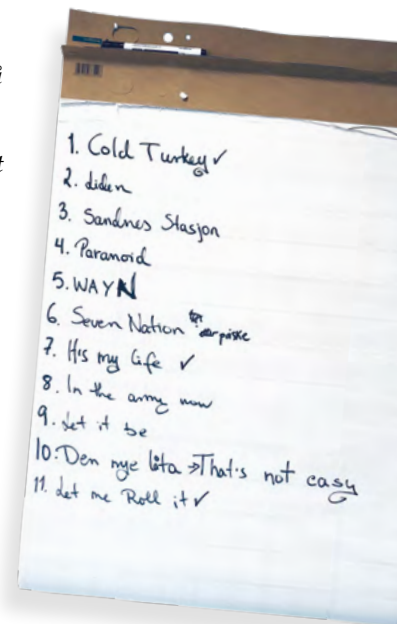 i
t
1. Cold Turkey ✓
2. diden
3. Sandnes Stasjon
4. Paranoid
5. WAYN
6. Seven Nation
7. It's my life ✓
8. In the army now
9. Let it be
10: Den nye låta → That's not easy
11. Let me Roll it ✓